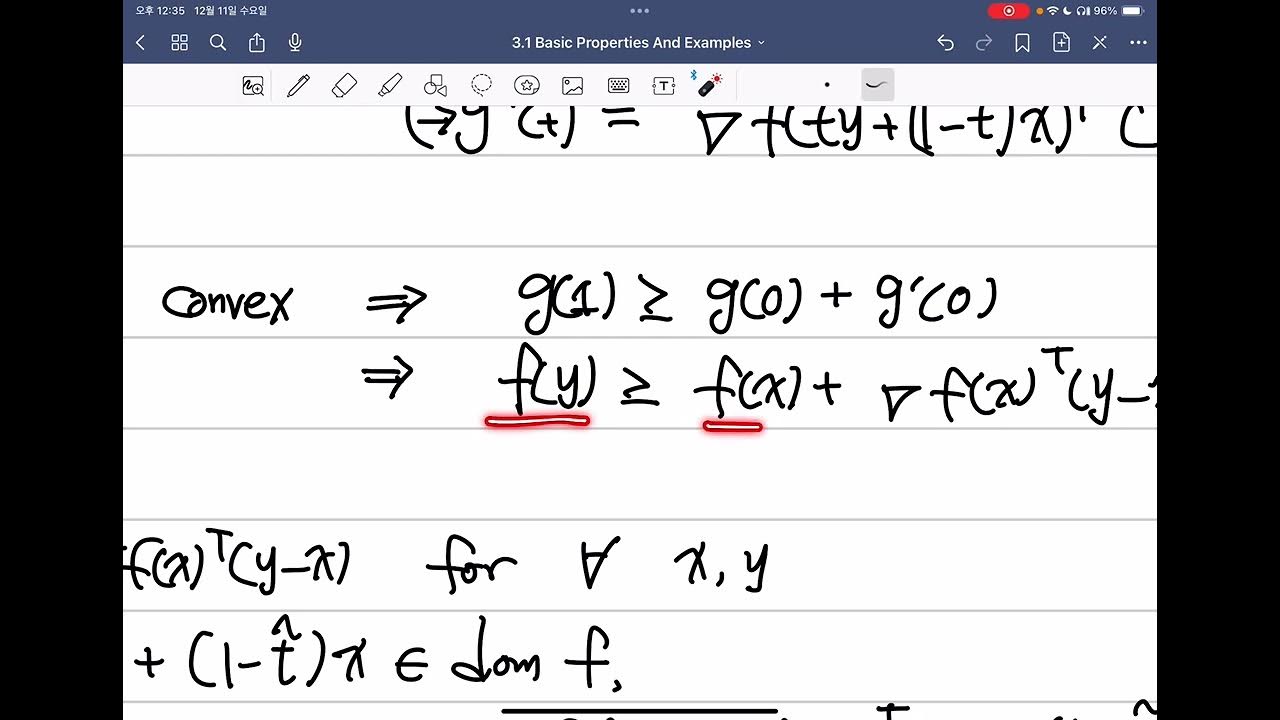 오후 12:35 12월 11일 수요일
96%
3.1 Basic Properties And Examples
(→g'(t) = ∇f(ty+(1-t)x)ᵀ (
convex ⇒ g(1) ≥ g(0) + g'(0)
⇒ f(y) ≥ f(x) + ∇f(x)ᵀ(y-
f(x)ᵀ(y-x) for ∀ x, y
+ (1-t̃)x ∈ dom f,